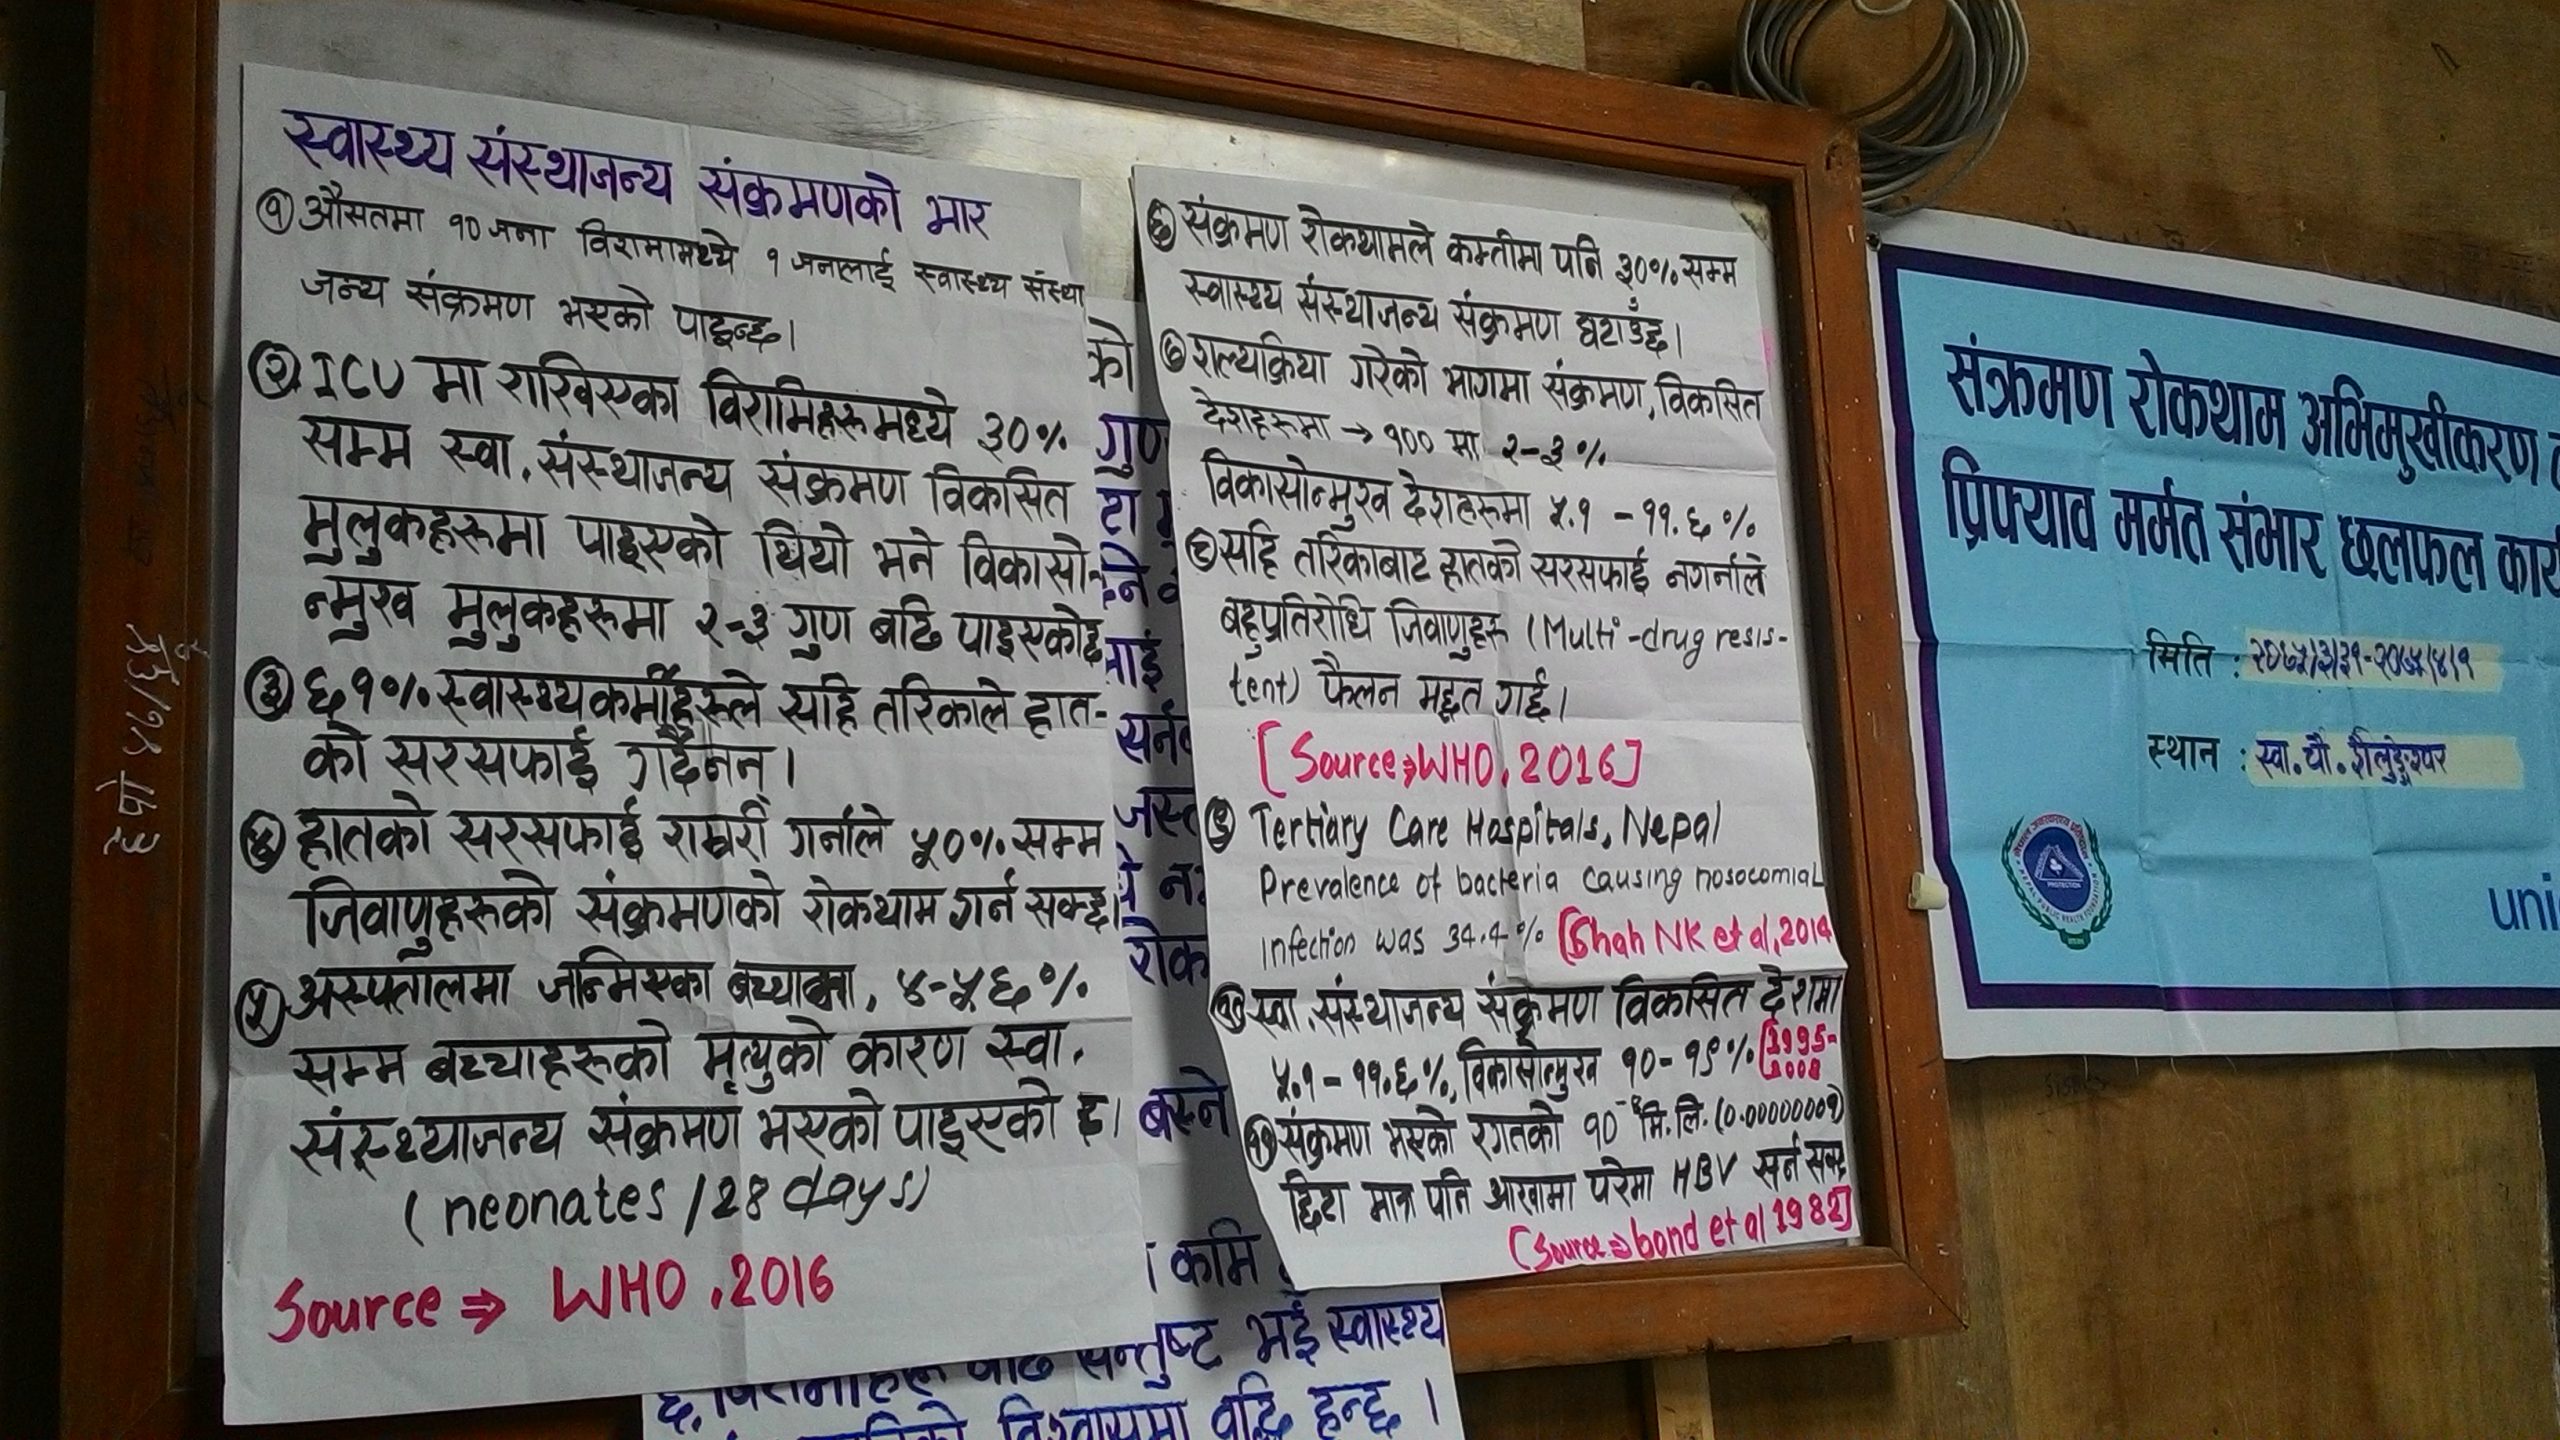 स्वास्थ्य संस्थाजन्य संक्रमणको भार
१ औसतमा १० जना विरामीमध्ये १ जनालाई स्वास्थ्य संस्था
जन्य संक्रमण भएको पाइन्छ।
२ ICU मा राखिएका विरामिहरूमध्ये ३०%
सम्म स्वा. संस्थाजन्य संक्रमण विकसित
मुलुकहरूमा पाइएको थियो भने विकासो-
न्मुख मुलुकहरूमा २-३ गुण बढि पाइएकोछ
३ ६१% स्वास्थ्यकर्मीहरूले सहि तरिकाले हात-
को सरसफाई गर्दैनन्।
४ हातको सरसफाई राम्ररी गर्नाले ५०% सम्म
जिवाणुहरूको संक्रमणको रोकथाम गर्न सक्छ।
५ अस्पतालमा जन्मिएका बच्चामा, ४-५६%
सम्म बच्चाहरूको मृत्युको कारण स्वा.
संस्थ्याजन्य संक्रमण भएको पाइएको छ।
(neonates/28 days)
Source ⇒ WHO, 2016
६ संक्रमण रोकथामले कम्तीमा पनि ३०% सम्म
स्वास्थ्य संस्थाजन्य संक्रमण घटाउँछ।
७ शल्यक्रिया गरेको भागमा संक्रमण, विकसित
देशहरूमा → १०० मा २-३%
विकासोन्मुख देशहरूमा ५.१ - ११.६%
८ सहि तरिकाबाट हातको सरसफाई नगर्नाले
बहुप्रतिरोधि जिवाणुहरू (Multi-drug resis-
tent) फैलन मद्दत गर्छ।
[Source ⇒ WHO, 2016]
९ Tertiary Care Hospitals, Nepal
Prevalence of bacteria causing nosocomial
infection was 34.4% [Shah NK et al, 2014
१० स्वा. संस्थाजन्य संक्रमण विकसित देशमा
५.१ - ११.६%, विकासोन्मुख १०-१९% [1995-
2008
११ संक्रमण भएको रगतको १०⁻⁸ मि.लि. (0.00000001)
छिटा मात्र पनि आखामा परेमा HBV सर्न सक्छ
[Source ⇒ bond et al 1982]
को
गुण
सर्न
रोक
बस्ने
कमि
सन्तुष्ट भई स्वास्थ्य
विश्वासमा वृद्धि हुन्छ।
संक्रमण रोकथाम अभिमुखीकरण
प्रिफ्याव मर्मत संभार छलफल
मिति : २०७५/३/३१-२०७५/४/१
स्थान : स्वा. चौ. शैलुङ्गेश्वर
uni